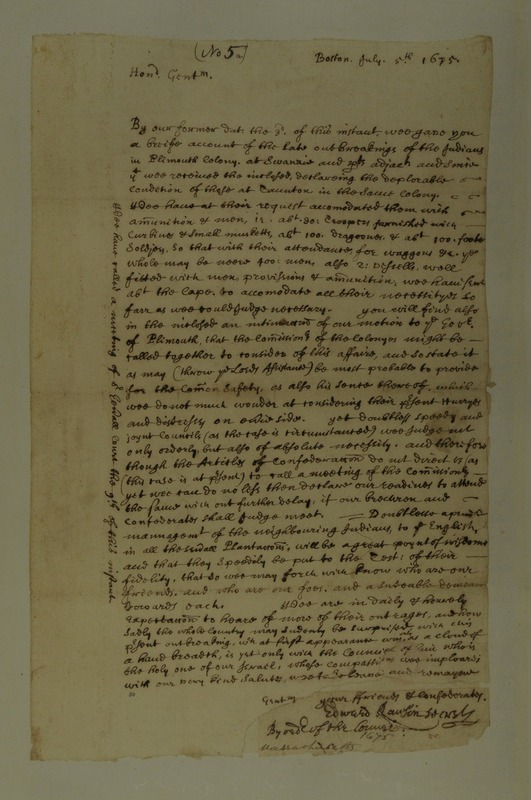 (No 5.)
Boston. July. 5th 1675.
Hond. Gentm.
By our former dat: the 2d. of this instant, wee gave you
a briefe account of the late outbreakings of the Indians
in Plimouth Colony. at Swansie and adjact and since
yt wee receved the inclosed, declareing the deplorable
condition of those at Taunton in the same colony.
Wee have at their request accomodated them with
amunition & men, ie. abt 80: troopers furnished with
Carbins & small musketts, abt 100. dragoones, & abt 100. foote
Soldjrs. So that with their attendants, for waggons &c. ye
whole may be neere 400: men, also 2: vessells, well
fitted with men provisions & amunition; wee have sent
abt the Cape. to accomodate all their necessityes so
farr as wee could judge necessary. you will find also
in the inclosed an intimation of our motion to ye Govr.
of Plimouth, that the Comissionrs of the colonyes might be
called together to consider of this affaire, and so state it
as may (throw ye Lords Assistance) be most probable to provide
for the Comon Safety. as also his sence thereof, which
wee do not much wonder at considering their psent
and distresses on every side. yet doubtless speedy and
joynt Councills (as the case is circumstanced) wee judge not
only orderly but also of absolute necessity. and therefore
though the Articles of Confederation do not direct us (as
this case is at psent) to call a meeting of the Comissionrs
yet wee can do no less then declare our readines to attend
the same with out further delay, if our brethren and
Confederates shall judge meet. Doubtless a
managemt of the neighbouring Indians, to ye English,
in all the small Plantations, will be a great poynt of wisdome
and that they speedily be put to the Test: of their
fidelity, that so we may forth with know who are our
friends, and who are our foes, and a suteable demeanr
towards each. Wee are in daily & hourely
expectation to heare of more of their outrages, and how
sadly the whole Country may sudenly be surprised with this
psent outbreaking, wch at first appearance as a cloud of
a hand breadth, is yet only with the Councill of him who is
the holy one of our Israel, whose compassions wee implore;
with our very kind salutes, wee leave and remayne
Gentm
your ffriends & Confederates.
Edward Rawson Secrety
By ordr of the Councill
Massachusets
1675
Wee have called a meeting of ye Generall Court the 9th of this instant.